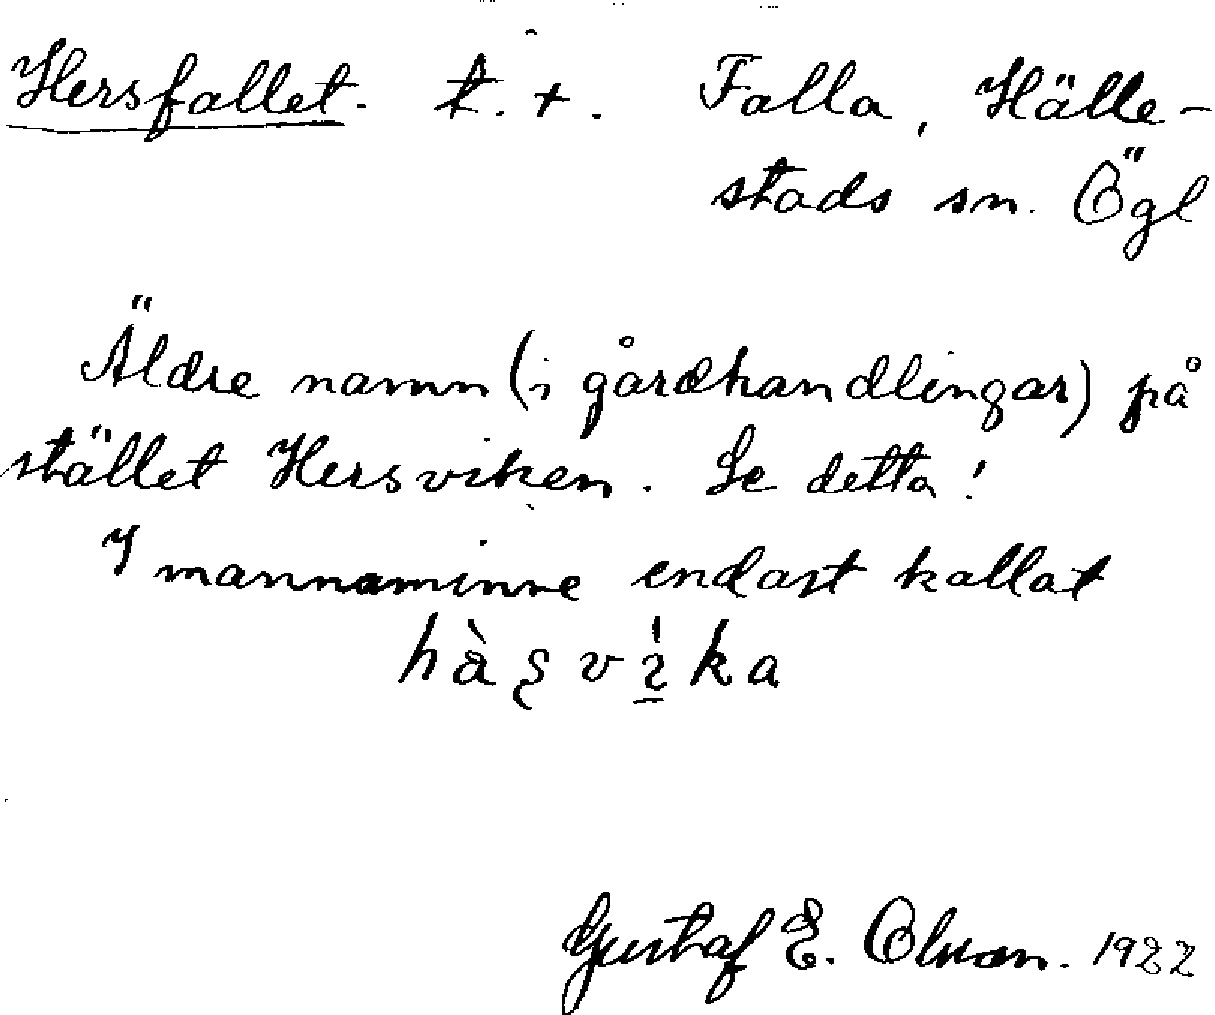 Hersfallet. t. +. Falla, Hälle-
stads sn. Ögl
Äldre namn (i gårdhandlingar) på
stället Hersviken. Se detta!
I mannaminne endast kallat
Gustaf E. Olson. 1922